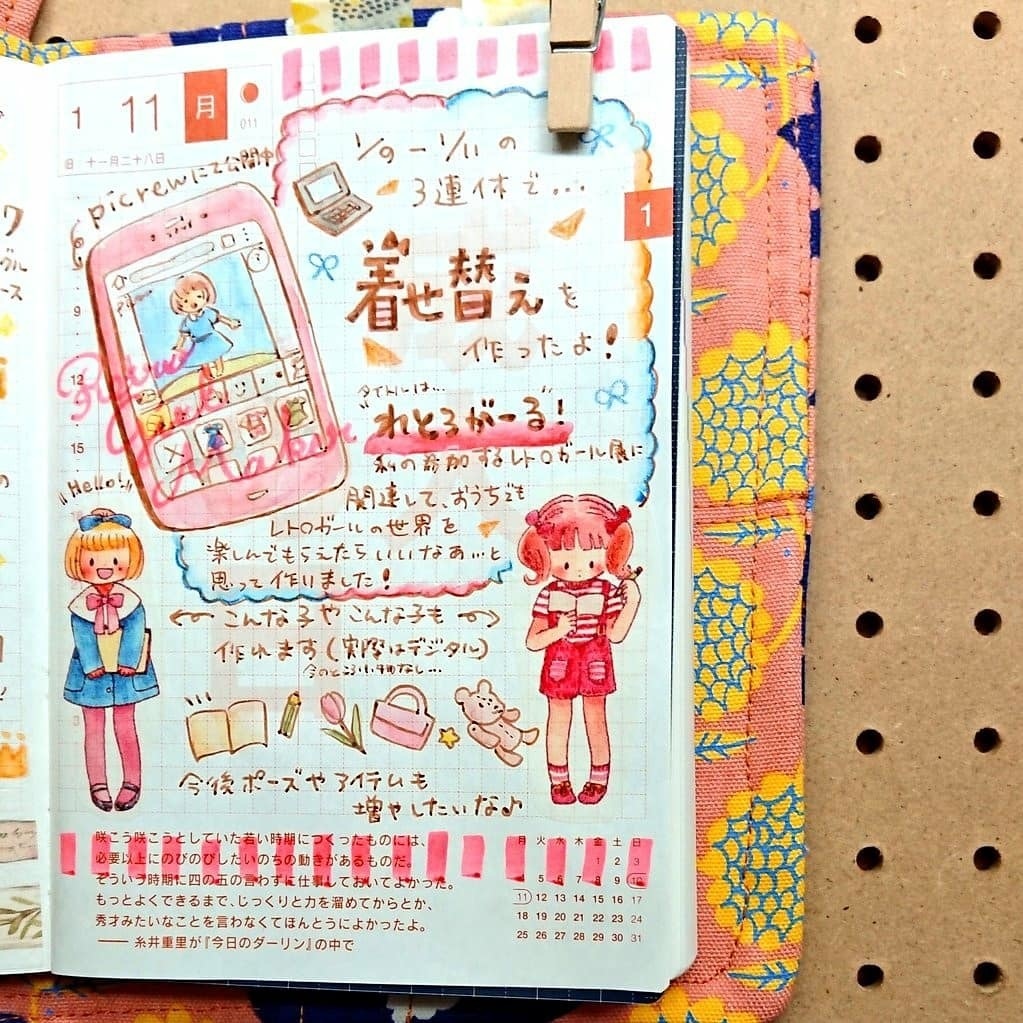 1 11 月
011
旧 十一月二十八日
picrewにて公開中
3連休で...
着せ替えを
作ったよ!
1
タイトルは...
"れとろがーる!"
私の参加するレトロガール展に
関連して、おうちでも
レトロガールの世界を
楽しんでもらえたらいいなぁ...と
思って作りました!
9
12
15
Retro
Girl
Maker
"Hello!"
こんな子やこんな子も
作れます(実際はデジタル)
今のところ小物なし...
今後ポーズやアイテムも
増やしたいな♪
咲こう咲こうとしていた若い時期につくったものには、
必要以上にのびのびしたいのちの動きがあるものだ。
そういう時期に四の五の言わずに仕事しておいてよかった。
もっとよくできるまで、じっくりと力を溜めてからとか、
秀才みたいなことを言わなくてほんとうによかったよ。
—— 糸井重里が『今日のダーリン』の中で
月 火 水 木 金 土 日
1 2 3
4 5 6 7 8 9 10
11 12 13 14 15 16 17
18 19 20 21 22 23 24
25 26 27 28 29 30 31